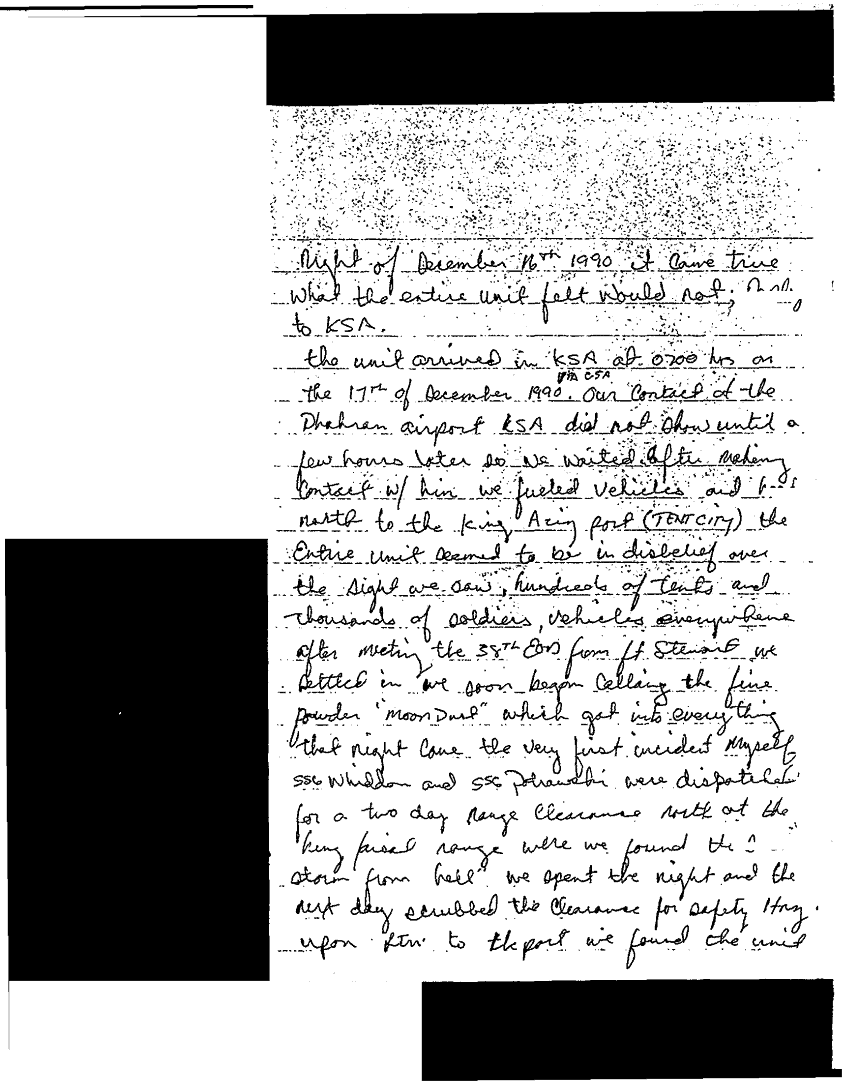 Night of December 16th 1990 it came true
what the entire unit felt would not;
to KSA.
the unit arrived in KSA at 0700 hrs on
the 17th of December 1990. via C5A Our Contact at the
Dhahran airport KSA did not show until a
few hours later so we waited. After making
Contact w/ him we fueled vehicles and
north to the King Aziz port (TENT CITY) the
Entire unit seemed to be in disbelief over
the sight we saw, hundreds of tents and
thousands of soldiers, vehicles everywhere
after meeting the 38TH EOD from ft Stewart we
settled in we soon began Calling the fine
powder "Moon Dust" which got into everything
that night Came the very first incident Myself
SSG Whiddon and SSG were dispatched
for a two day Range Clearance north at the
king faisal range where we found the
storm from hell" we spent the night and the
next day scrubbed the Clearance for safety
upon Rtn. to the port we found the unit